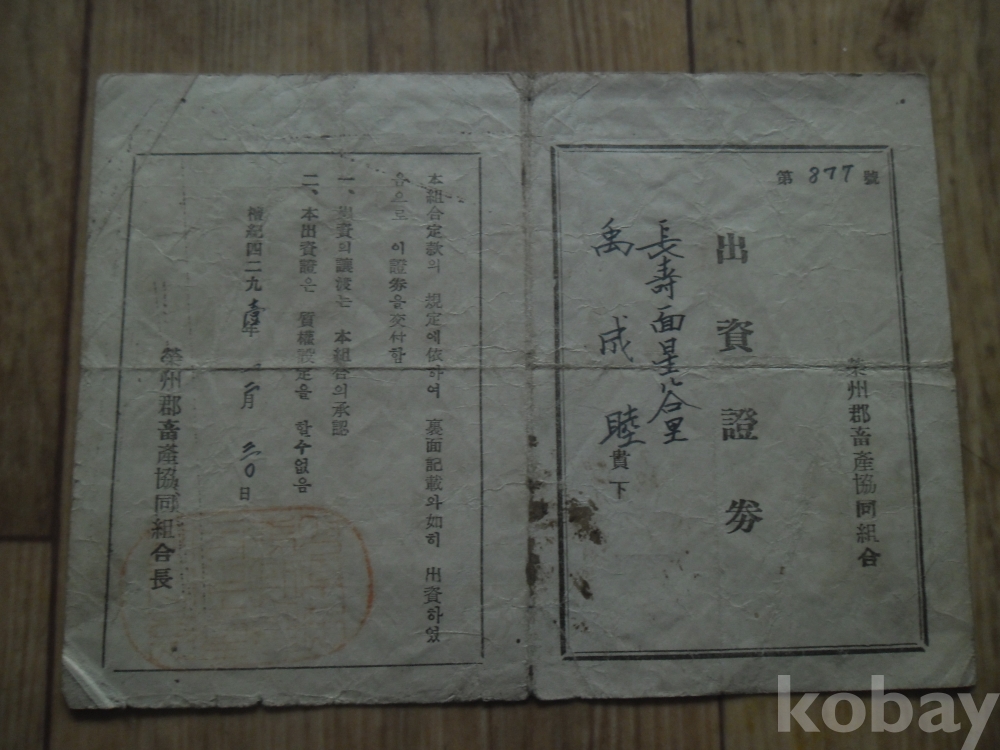 第 877 號
榮州郡畜產協同組合
出資證券
長壽面星谷里
禹成睦 貴下
本組合定款의 規定에依하여 裏面記載와如히 出資하였
음으로 이證券을交付함
一、出資의讓渡는 本組合의承認
二、本出資證은 質權設定을 할수없음
檀紀四二九壹年 一二月 三〇日
榮州郡畜產協同組合長
kobay